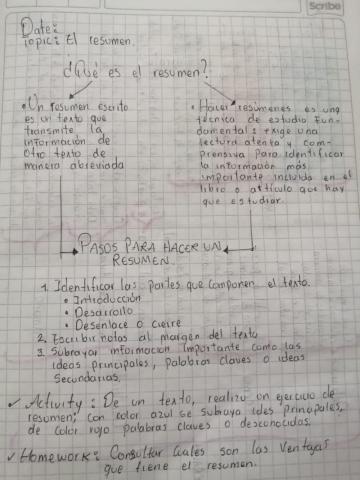 Scribe
Date:
Topic: El resumen.
¿Qué es el resumen?
• Un resumen escrito
es un texto que
transmite la
información de
otro texto de
manera abreviada
• Hacer resúmenes es una
técnica de estudio fun-
damental: exige una
lectura atenta y com-
prensiva para identificar
la información más
importante incluida en el
libro o artículo que hay
que estudiar.
PASOS PARA HACER UN
RESUMEN.
1. Identificar las partes que componen el texto.
• Introducción
• Desarrollo
• Desenlace o cierre
2. Escribir notas al margen del texto
3. Subrayar información importante como las
ideas principales, palabras claves o ideas
Secundarias.
✓ Activity: De un texto, realizo un ejercicio de
resumen; con color azul se subraya ides principales,
de color rojo palabras claves o desconocidas.
✓ Homework: Consultar cuales son las ventajas
que tiene el resumen.